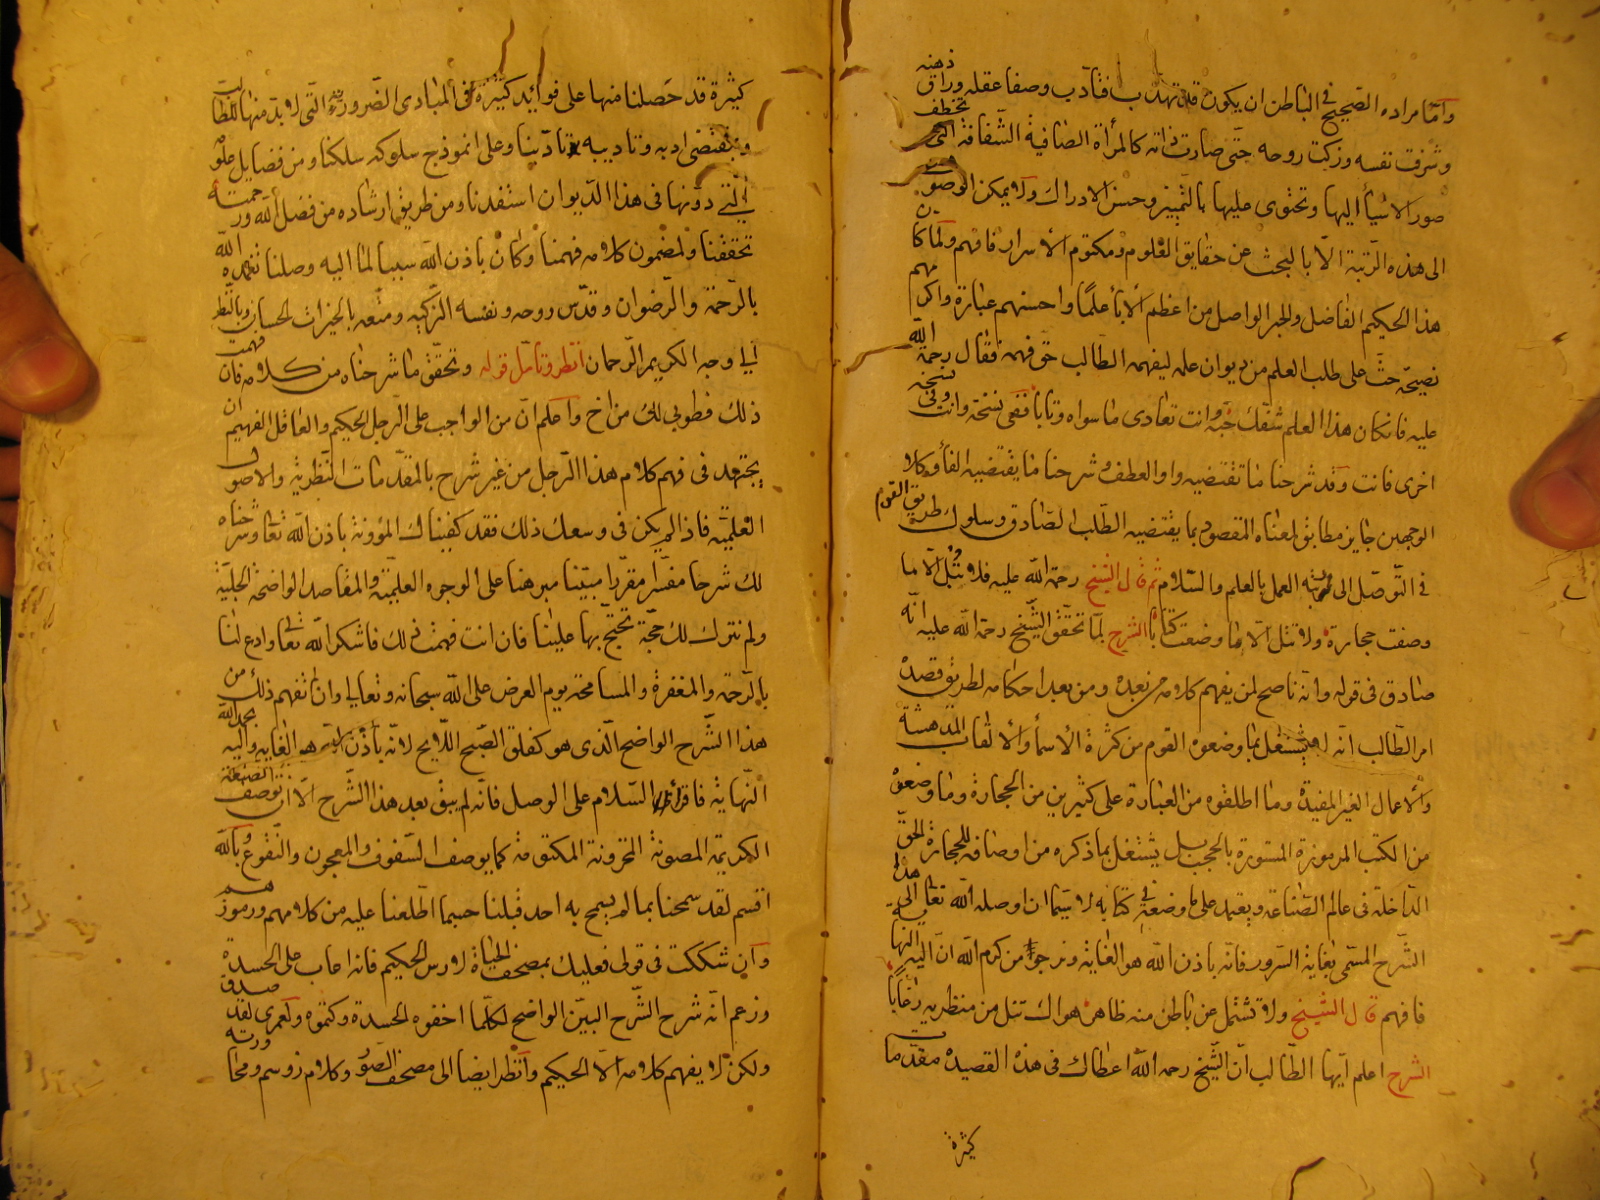 وامّا مراده الصّحيح فى الباطن ان يكون قد تهذّب بافتأدّب وصفا عقله وراق ذهنه
وشرفت نفسه وزكت روحه حتّى صارت ذاته كالمرأة الصّافية الشّفافة الّتى تخطف
صور الاشيأ اليها وتحتوى عليها بالتّمييز وحسن الادراك ولا يمكن الوصول
الى هذه الرّتبة الّا بالبحث عن حقايق العلوم ومكتوم الأسرار فافهم ولمّا كان
هذا الحكيم الفاضل والحبر الواصل من اعظم الأبأ علمًا واحسنهم عبارة واكرمهم
نصيحة حثّ على طلب العلم من ديوان علمه ليفهمه الطّالب حقّ فهمه فقال رحمة اللّه
عليه فانكان هذا العلم شفّك حبّه وانت تعادى ما سواه وتابا ففى نسخة وانت وفى نسخة
اخرى فانت وقد شرحنا ما تقتضيه واو العطف وشرحنا ما يقتضيه الفأ وكلا
الوجهين جايز مطابق لمعناه المقصود بما يقتضيه الطّلب الصّادق وسلوك طريق القوم
فى التّوصّل الى مرتبة العمل بالعلم والسّلام ثم قال الشيخ رحمة اللّه عليه فلا تبل الّا ما
وصفت حجارة ولا تتل الّا ما وضعت كتابا الشرح لمّا تحقّق الشّيخ رحمة اللّه عليه انّه
صادق فى قوله وانّه ناصح لمن يفهم كلامه من بعده ومن بعد احكامه لطريق قصده
امر الطّالب انّه لا يشتغل بما وضعوه القوم من كثرة الأسمأ والألقاب المدهشة
والأعمال الغير المفيدة وما اطلقوه من العبارة على كثيرين من الحجارة وما وضعوه
من الكتب المرموزة المستورة بالحجب بل يشتغل بما ذكره من اوصافه للحجارة الحقّ
الدّاخلة فى عالم الصّناعة ويعتمد على ما وضعه فى كتابه لا سيّما ان اوصله اللّه تعالى الى هذا
الشّرح المسمّى بغاية السّرور فانّه باذن اللّه هو الغاية ونرجو من كرم اللّه انّ اليه النّهاية
فافهم قال الشيخ ولا تشتمل عن باطن منه ظاهر هواك تنل من منظريه رغابًا
الشرح اعلم ايّها الطّالب انّ الشّيخ رحمه اللّه اعطاك فى هذه القصيدة مقدّمات
كثيرة
كثيرة قد حصلنا منها على فوايد كثيرة فى المبادى الضّروريّة الّتى لا بدّ منها للطّالب
وبمقتضى ادبه وتاديبه تادّبنا وعلى انموذج سلوكه سلكنا ومن فضايل علومه
الّتى دوّنها فى هذا الدّيوان استفدنا ومن طريق ارشاده من فضل اللّه ورحمته
تحققنا ولمضمون كلامه فهمنا وكان باذن اللّه سببا لما اليه وصلنا تغمده اللّه
بالرّحمة والرّضوان وقدّس روحه ونفسه الزّكيه ومتعه بالخيرات الحسان وبالنّظر
الى وجه الكريم الرّحمان انظر وتامّل قوله وتحقّق ما شرحناه من كلامه فان فهمت
ذلك فطوبى لك من اخ واعلم انّ من الواجب على الرّجل الحكيم والعاقل الفهيم ان
يجتهد فى فهم كلام هذا الرّجل من غير شرح بالمقدّمات النّظرية والاصول
العلميّة فاذا لم يكن فى وسعك ذلك فقد كفيناك المؤونة باذن اللّه تعا وشرحناه
لك شرحا مفسّرا مقررا مبيّنا مبرهنا على الوجوه العلميّة والمقاصد الواضحة الجليّة
ولم نترك لك حجّة تحتجّ بها علينا فان انت فهمت ذلك فاشكر اللّه تعالى وادع لنا
بالرّحمة والمغفرة والمسامحة يوم العرض على اللّه سبحانه وتعالى وان لم تفهم ذلك من
هذا الشّرح الواضح الّذى هو كفلق الصّبح اللّايح لانّه باذن اللّه هو الغاية واليه بحمد اللّه
النّهاية فاقرأ السّلام على الوصل فانّه لم يبق بعد هذا الشّرح الّا ان توصف الصّنعة
الكريمة المصونة المخزونة المكتومة كما يوصف السّفوف والمعجون والنّقوع وباللّه
اقسم لقد سمحنا بما لم يسمح به احد قبلنا حيما اطّلعنا عليه من كلامهم ورموزهم
وان شككت فى قولى فعليك بمصحف الحياة لارس الحكيم فانّه اعاب على الحسدة
وزعم انّه شرح الشّرح البيّن الواضح لكلّما اخفوه الحسدة وكتموه ولعمرى لقد صدق
ولكن لا يفهم كلامه الّا الحكيم وانظر ايضا الى مصحف الصّور وكلام زوسم ومحاورته